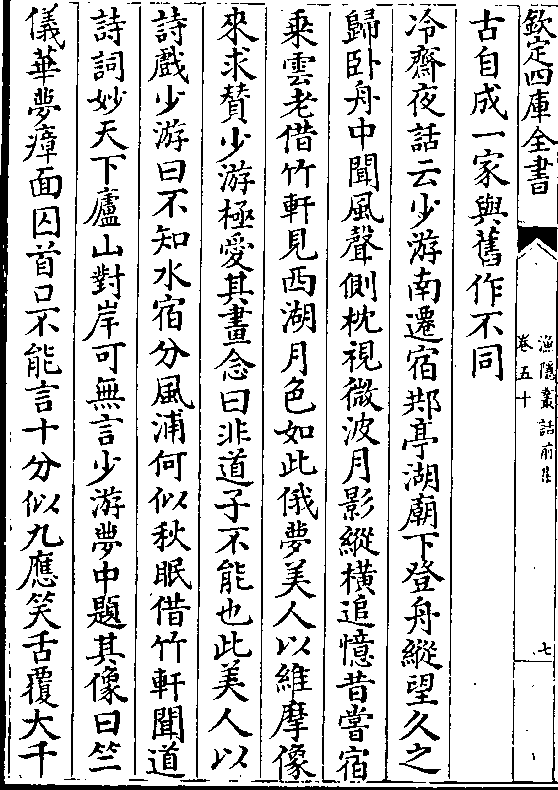 欽定四庫全書
漁隱叢話前集
卷五十
七
古自成一家與舊作不同
冷齋夜話云少游南遷宿䢼亭湖廟下登舟縱望久之
歸卧舟中聞風聲側枕視微波月影縱横追憶昔嘗宿
乘雲老借竹軒見西湖月色如此俄夢美人以維摩像
來求賛少游極愛其畫念曰非道子不能也此美人以
詩戲少游曰不知水宿分風浦何似秋眠借竹軒聞道
詩詞妙天下廬山對岸可無言少游夢中題其像曰竺
儀華夢瘴面囚首口不能言十分似九應笑舌覆大千